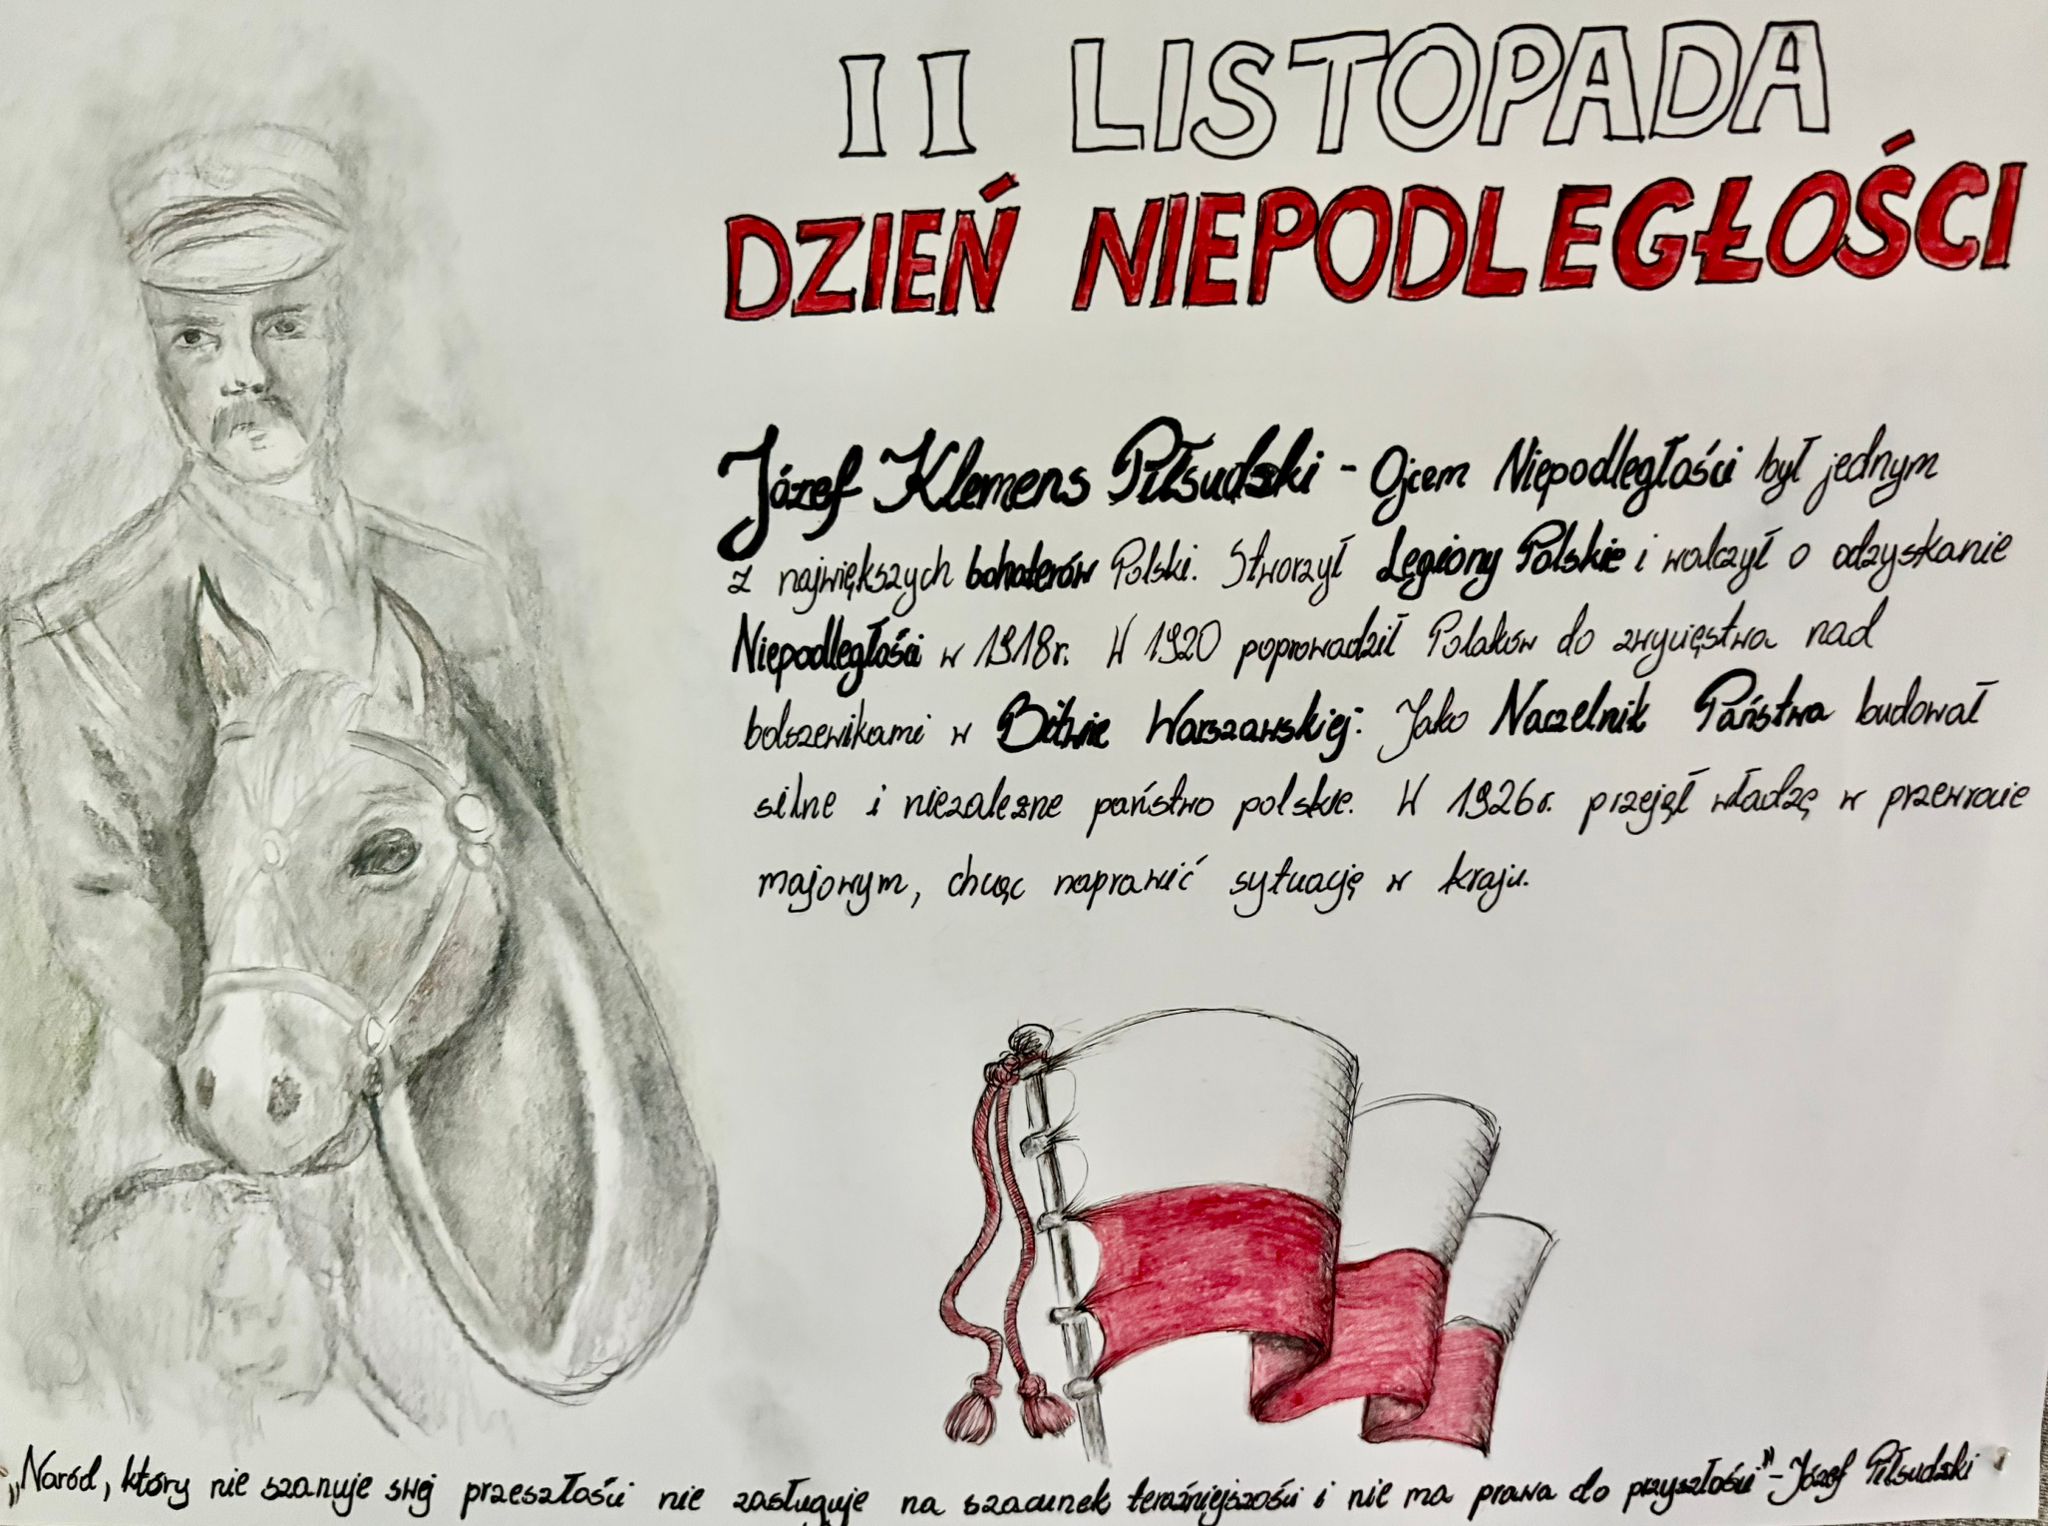 11 LISTOPADA
DZIEŃ NIEPODLEGŁOŚCI
Józef Klemens Piłsudski - Ojcem Niepodległości był jednym
z największych bohaterów Polski. Stworzył Legiony Polskie i walczył o odzyskanie
Niepodległości w 1918r. W 1920 poprowadził Polaków do zwycięstwa nad
bolszewikami w Bitwie Warszawskiej. Jako Naczelnik Państwa budował
silne i niezależne państwo polskie. W 1926r. przejął władzę w przewrocie
majowym, chcąc naprawić sytuację w kraju.
„Naród, który nie szanuje swej przeszłości nie zasługuje na szacunek teraźniejszości i nie ma prawa do przyszłości" - Józef Piłsudski